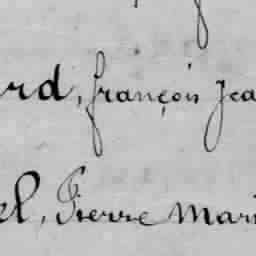 rd, françois Jea
el, Pierre Mari